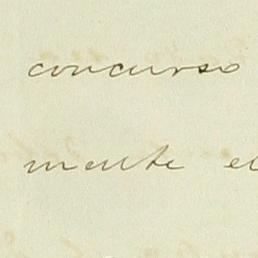 concurso
mente el